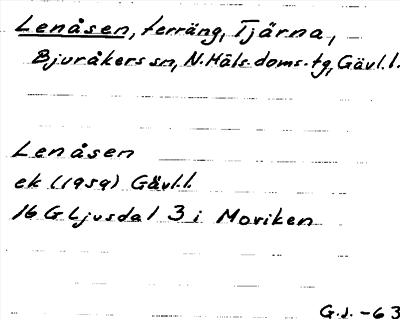 Lenåsen, terräng, Tjärna,
Bjuråkers sn, N. Häls. doms. tg, Gävl. l.
Lenåsen
ek (1959) Gävl. l.
16 G Ljusdal 3 i Moriken
G. J. -63